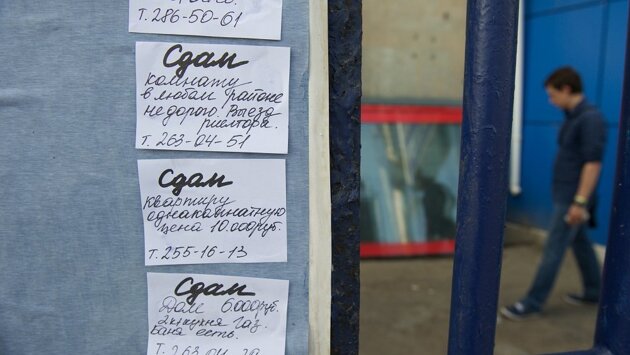 т. 286-50-61
Сдам
комнату
в любом районе
недорого! Выезд
риелтора.
т. 263-04-51
Сдам
квартиру
однакамнатную
цена 10.000руб.
т. 255-16-13
Сдам
Дом 6000руб.
2к+кухня Газ.
Баня есть.
т. 263 04